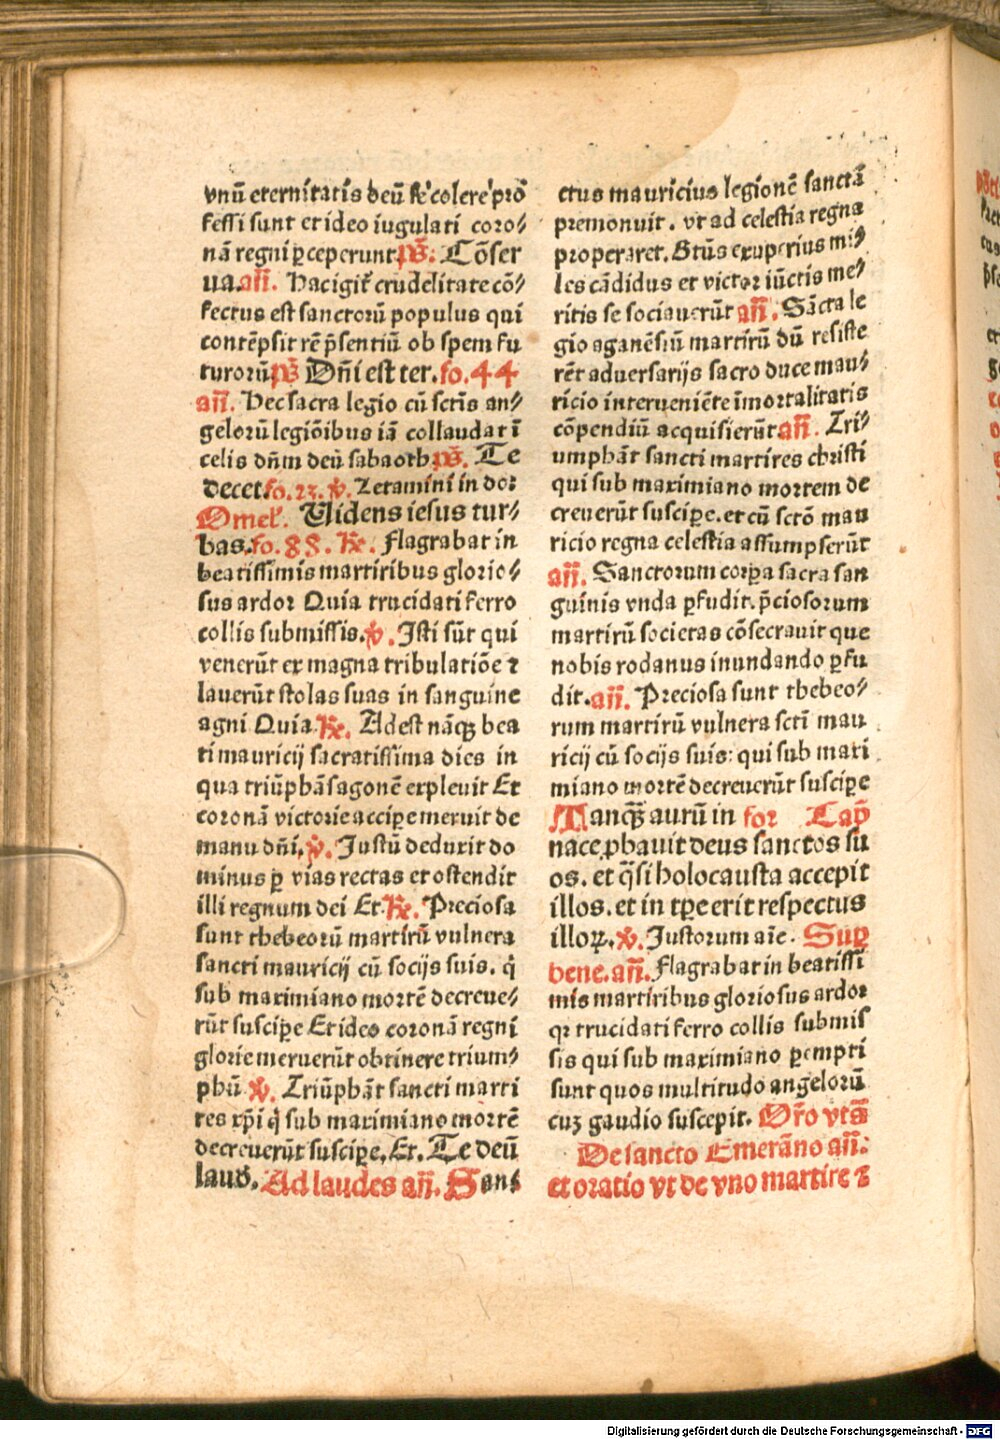 vnū eternitatis deū se colere pro
fessi sunt et ideo iugulati coro⸗
nā regni ꝑceperunt ps̄. Cōser
ua. añ. Hac igit᷑ crudelitate cō⸗
fectus est sanctorū populus qui
contēpsit rē p̄sentiū ob spem fu
turorū ps̄ Dñi est ter. fo. 44
añ. Hec sacra legio cū sctīs an⸗
gelorū legiōibus iā collaudat ī
celis dñm deū sabaoth. ps̄. Te
decet fo. 23. v̄. Letamini in do:
Omel'. Uidens iesus tur⸗
bas. fo. 88. R̄. Flagrabat in
beatissimis martiribus glorio⸗
sus ardor Quia trucidati ferro
collis submissis. v̄. Isti sūt qui
venerūt ex magna tribulatiōe ⁊
lauerūt stolas suas in sanguine
agni Quia R̄. Adest nāqꝫ bea
ti mauricij sacratissima dies in
qua triūphās agonē expleuit Et
coronā victorie accipe meruit de
manu dñi. v̄. Justū deduxit do
minus ꝑ vias rectas et ostendit
illi regnum dei Et. R̄. Preciosa
sunt thebeorū martirū vulnera
sancti mauricij cū socijs suis. q̇
sub maximiano mortē decreue⸗
rūt suscipe Et ideo coronā regni
glorie meruerūt obtinere trium⸗
phū v̄. Triūphāt sancti marti
res xp̄i q̇ sub maximiano mortē
decreuerūt suscipe. Et. Te deū
laud. Ad laudes añ. San⸗
ctus mauricius legionē sanctā
premonuit. vt ad celestia regna
properaret. Sctūs exuperius mi⸗
les cādidus et victor iūctis me⸗
ritis se sociauerūt añ. Sācta le
gio aganēsiū martirū dū resiste
rēt aduersarijs sacro duce mau⸗
ricio interueniēte īmortalitatis
cōpendiū acquisierūt añ. Tri⸗
umphāt sancti martires christi
qui sub maximiano mortem de
creuerūt suscipe. et cū sctō mau
ricio regna celestia assumpserūt
añ. Sanctorum corpa sacra san
guinis vnda ꝑfudit. p̄ciosorum
martirū societas cōsecrauit que
nobis rodanus inundando ꝑfu
dit. añ. Preciosa sunt thebeo⸗
rum martirū vulnera sctī mau
ricij cū socijs suis: qui sub maxi
miano mortē decreuerūt suscipe
Tanqꝫ aurū in for Cap̄
nace ꝓbauit deus sanctos su
os. et q̄si holocausta accepit
illos. et in tp̄e erit respectus
illoꝝ. v̄. Justorum aīe. Suꝑ
bene. añ. Flagrabat in beatissi
mis martiribus gloriosus ardor
qꝛ trucidati ferro collis submis
sis qui sub maximiano ꝑempti
sunt quos multitudo angelorū
cuꝫ gaudio suscepit. Or̄o vt s̄
De sancto Emerāno añ:
et oratio vt de vno martire ⁊
Digitalisierung gefördert durch die Deutsche Forschungsgemeinschaft - DFG